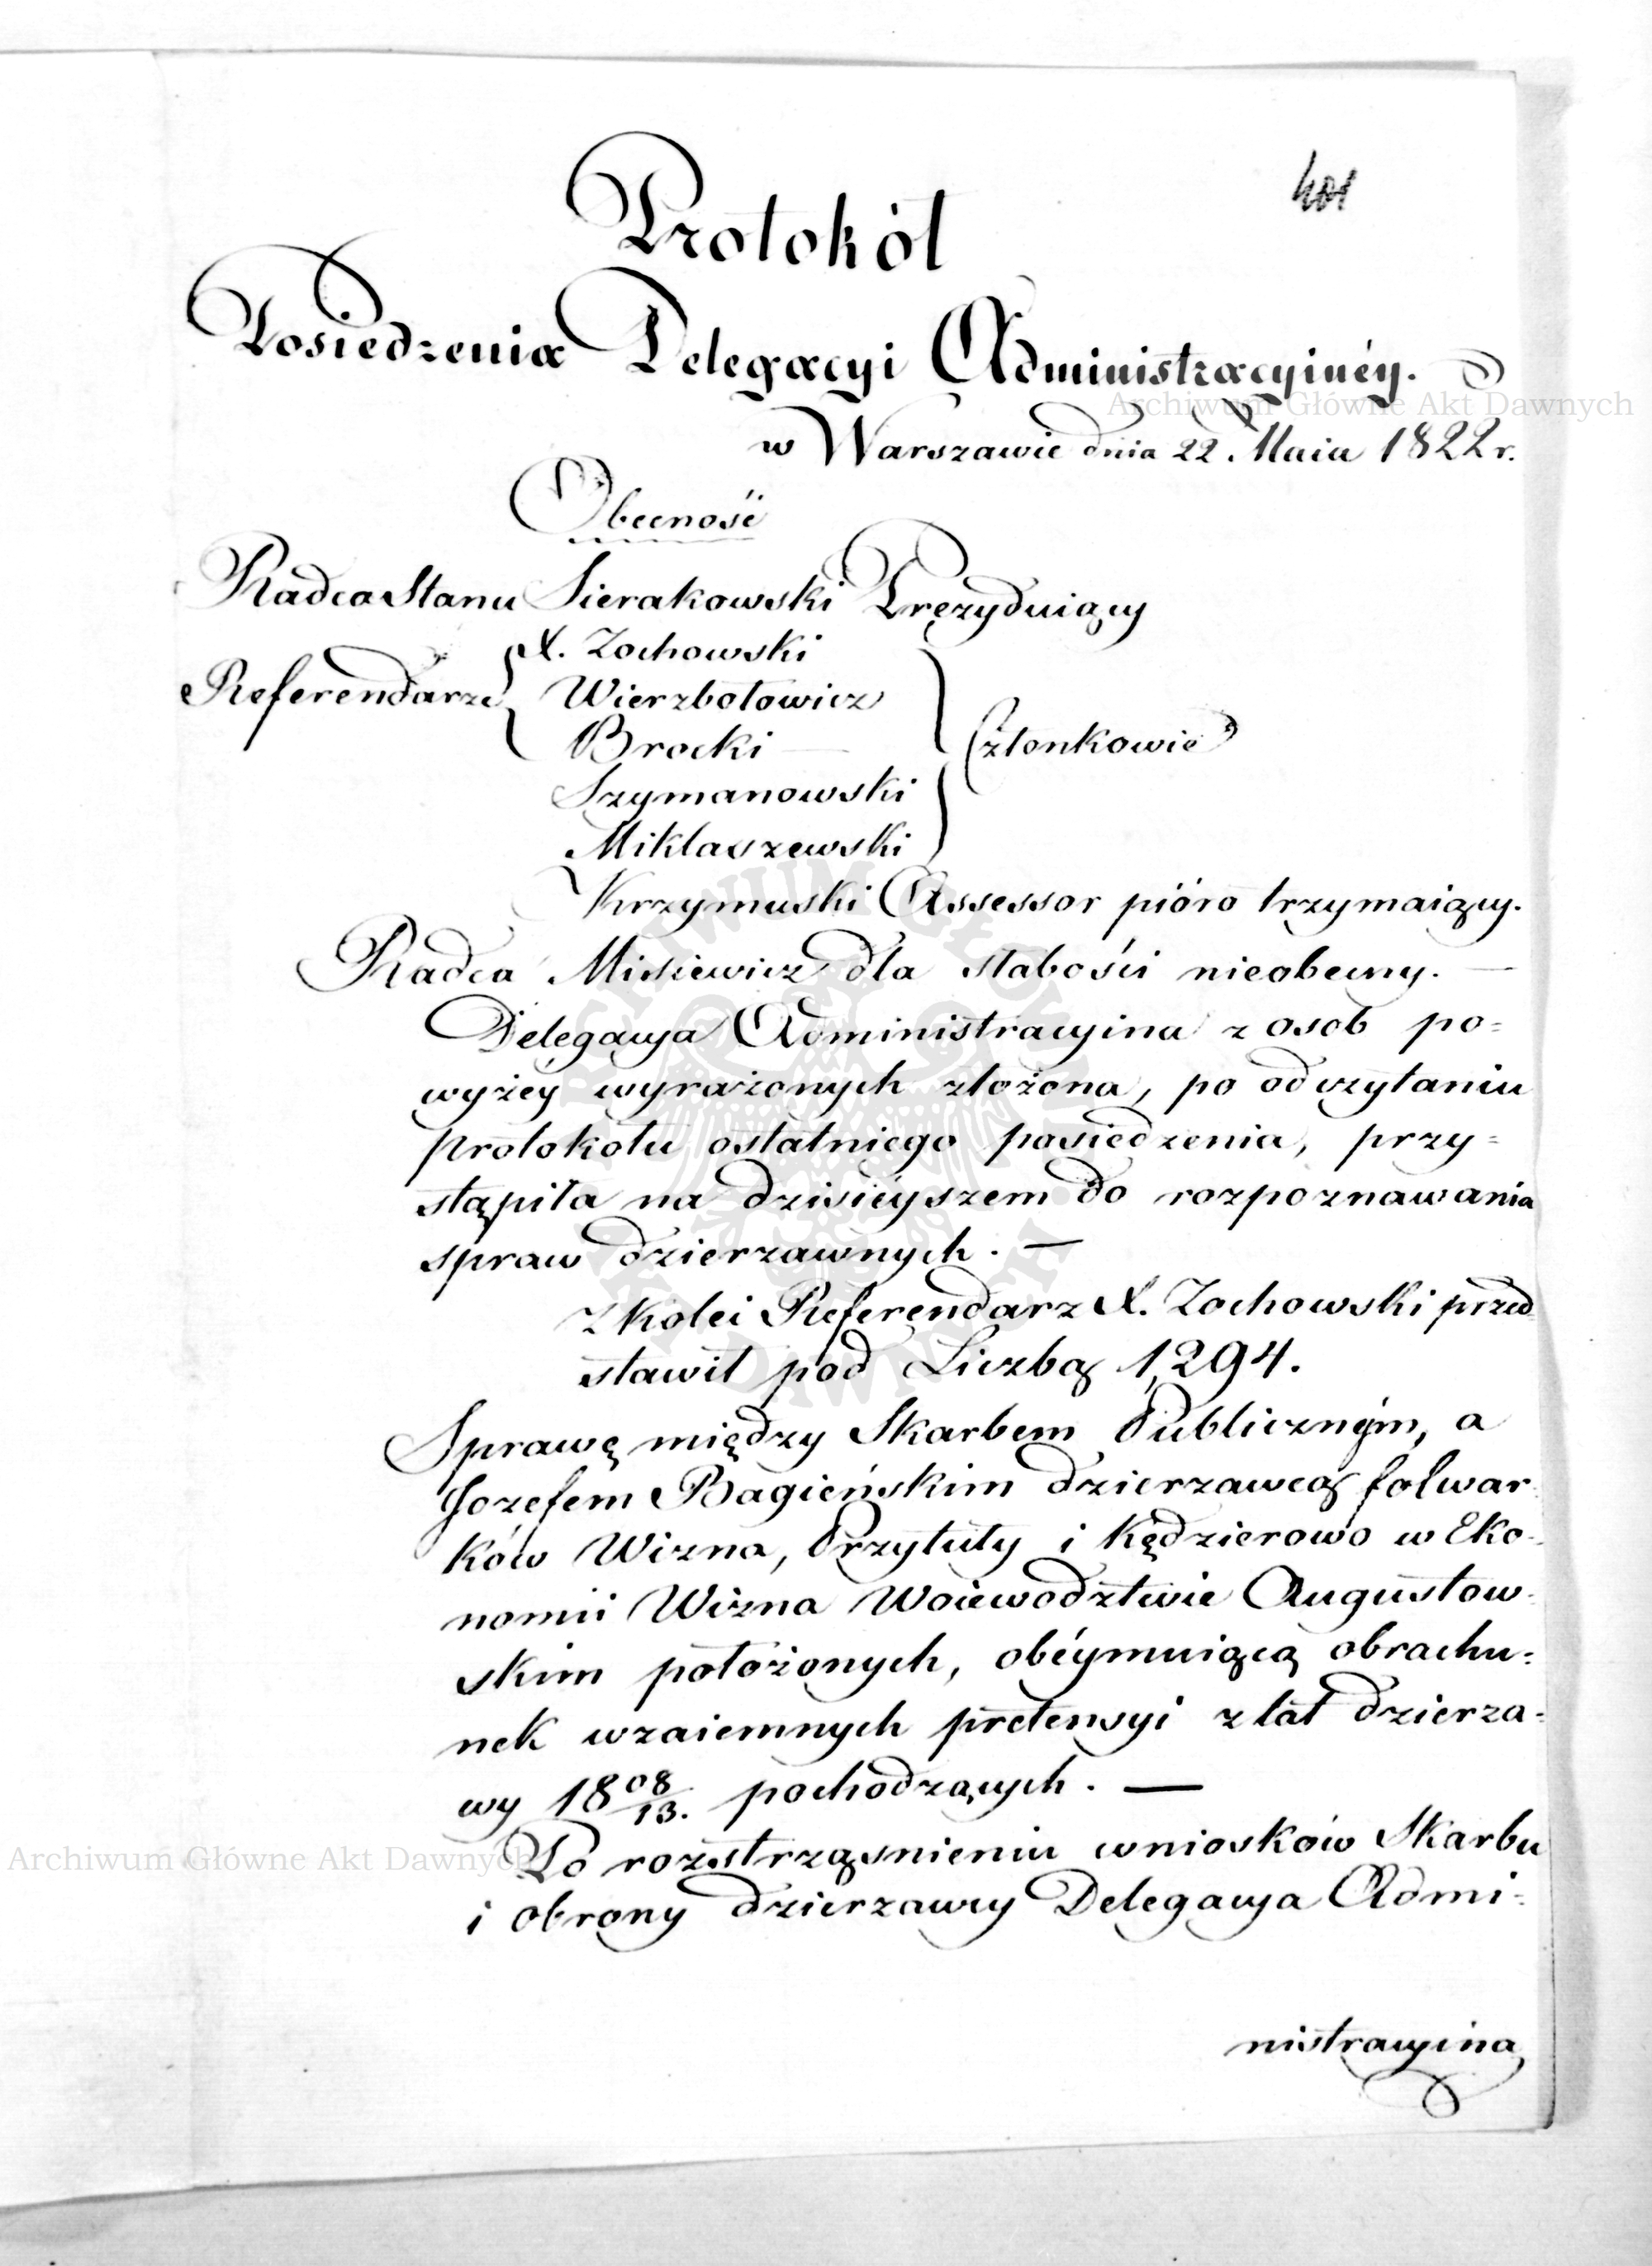 401
Protokół
Posiedzenia Delegacyi Administracyinéy.
Archiwum Główne Akt Dawnych
w Warszawie dnia 22. Maia 1822 r.
Obecność
Radca Stanu Sierakowski Prezyduiący
X. Zochowski
Referendarze Wierzbołowicz
Brocki — Członkowie
Szymanowski
Miklaszewski
Krzymuski Assessor pióro trzymaiący.
Radca Misiewicz dla słabości nieobecny. —
Delegacya Administracyina z osob po=
wyżéy wyrażonych złożona, po odczytaniu
protokołu ostatniego posiedzenia, przy=
stąpiła na dzisiéyszem do rozpoznawania
spraw dzierzawnych. —
z kolei Referendarz X. Zochowski przed
stawił pod Liczbą 1,294.
Sprawę między Skarbem Publicznym, a
Jozefem Bagieńskim dzierzawcą folwar=
ków Wizna, Przytuły i Kędzierowo w Eko=
nomii Wizna Woiewodztwie Augustow=
skim położonych, obéymuiącą obrachu=
nek wzaiemnych pretensyi z lat dzierza=
wy 1808/13. pochodzących. —
Po rozstrząśnieniu wniosków Skarbu
Archiwum Główne Akt Dawnych
i obrony dzierzawcy Delegacya Admi=
nistracyina